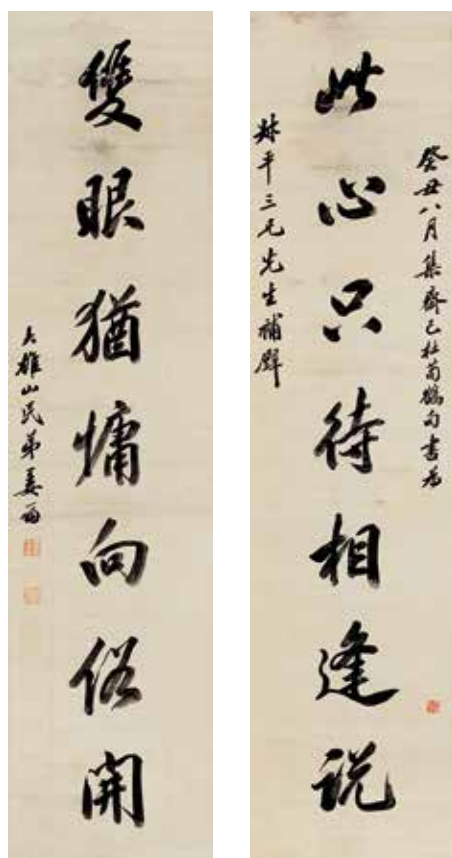 癸丑八月集齊己杜荀鶴句書為
此心只待相逢說
平三兄先生補壁
雙眼猶慵向俗開
大雄山民弟姜筠